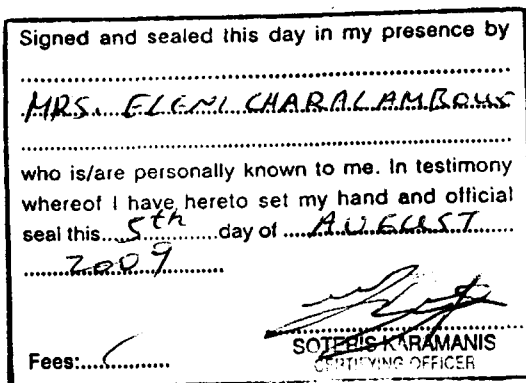 Signed and sealed this day in my presence by
MRS. ELENI CHARALAMBOUS
who is/are personally known to me. In testimony
whereof I have hereto set my hand and official
seal this 5th day of AUGUST
2009
SOTERIS KARAMANIS
CERTIFYING OFFICER
Fees: